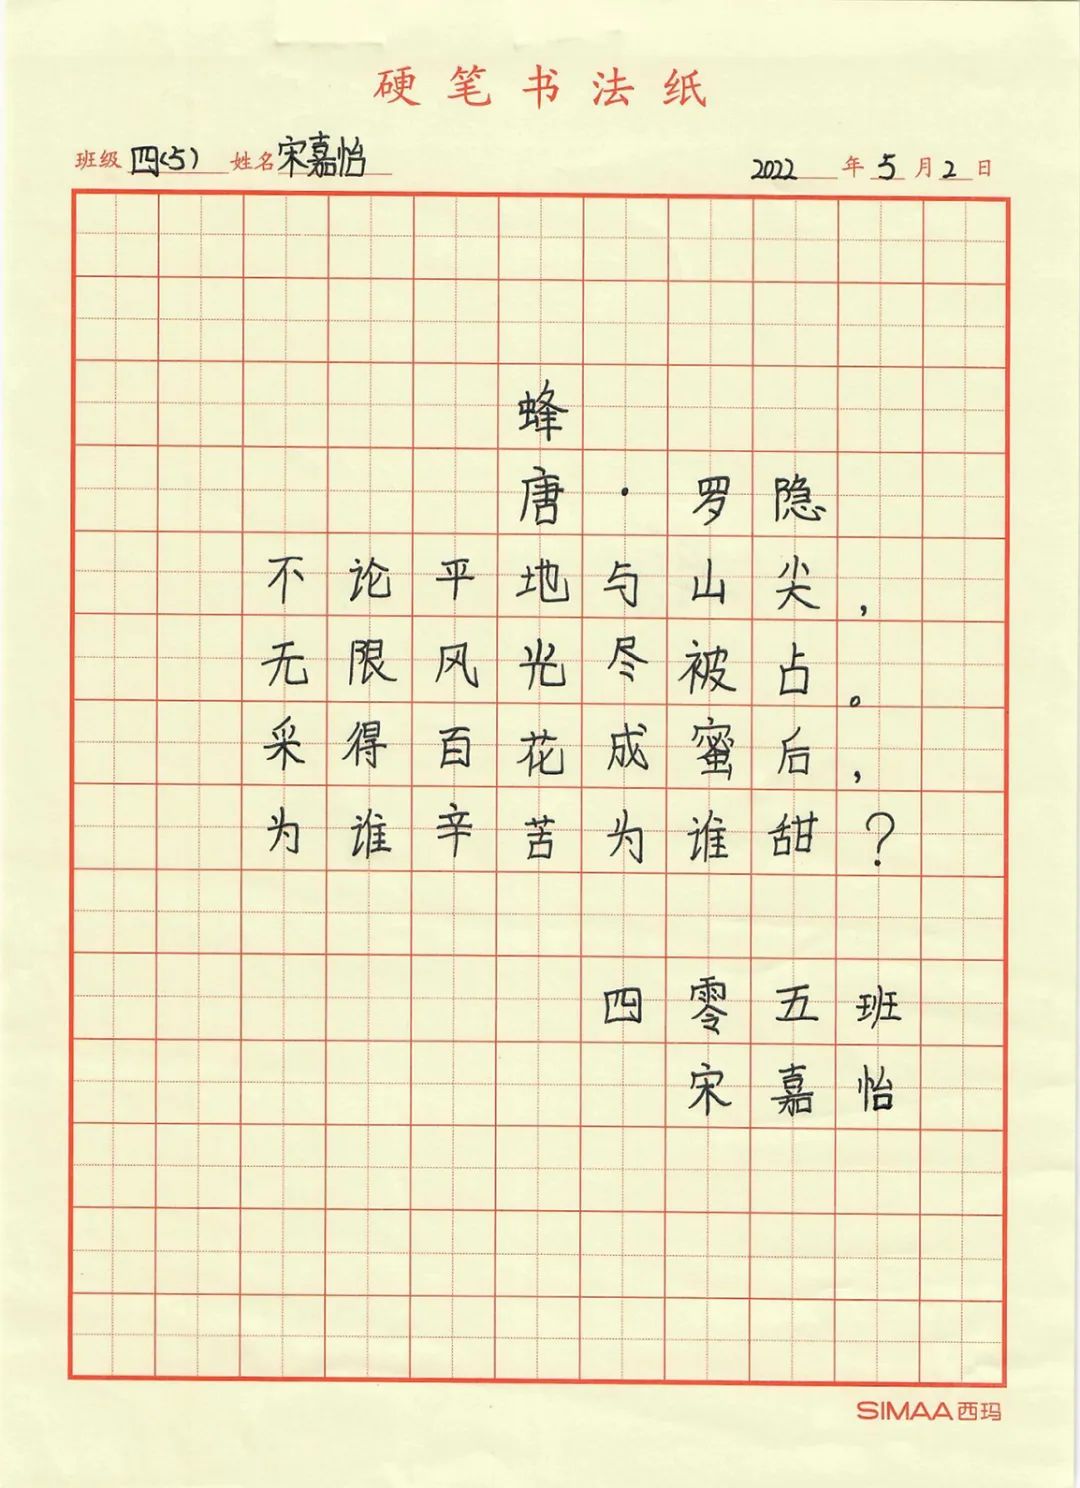 硬笔书法纸
班级 四(5) 姓名 宋嘉怡 2022 年 5 月 2 日
蜂
唐·罗隐
不论平地与山尖，
无限风光尽被占。
采得百花成蜜后，
为谁辛苦为谁甜？
四零五班
宋嘉怡
SIMAA西玛